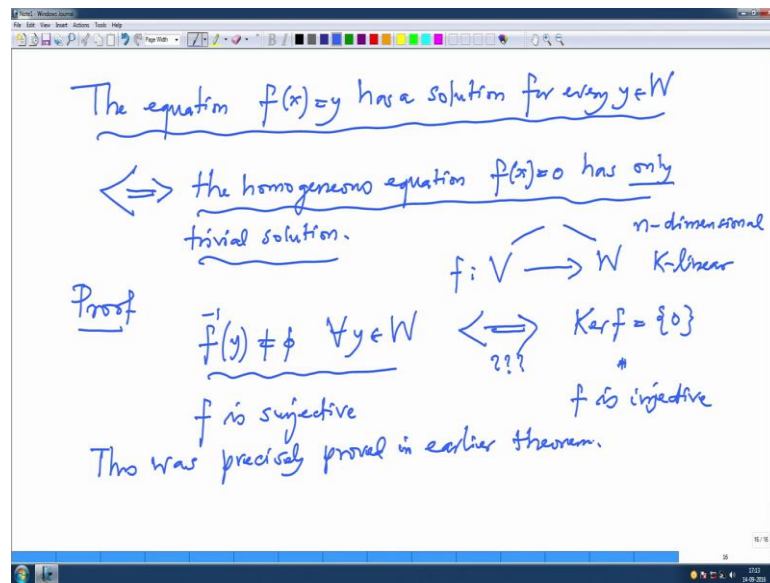 Note1 - Windows Journal
File Edit View Insert Actions Tools Help
Page Width
B I
The equation f(x)=y has a solution for every y∈W
<=> the homogeneous equation f(x)=0 has only
trivial solution.
n-dimensional
f: V → W K-linear
Proof
f⁻¹(y) ≠ ϕ ∀ y∈W <=> Ker f = {0}
???
f is surjective
f is injective
This was precisely proved in earlier theorem.
16/16
16
17:13
14-09-2016